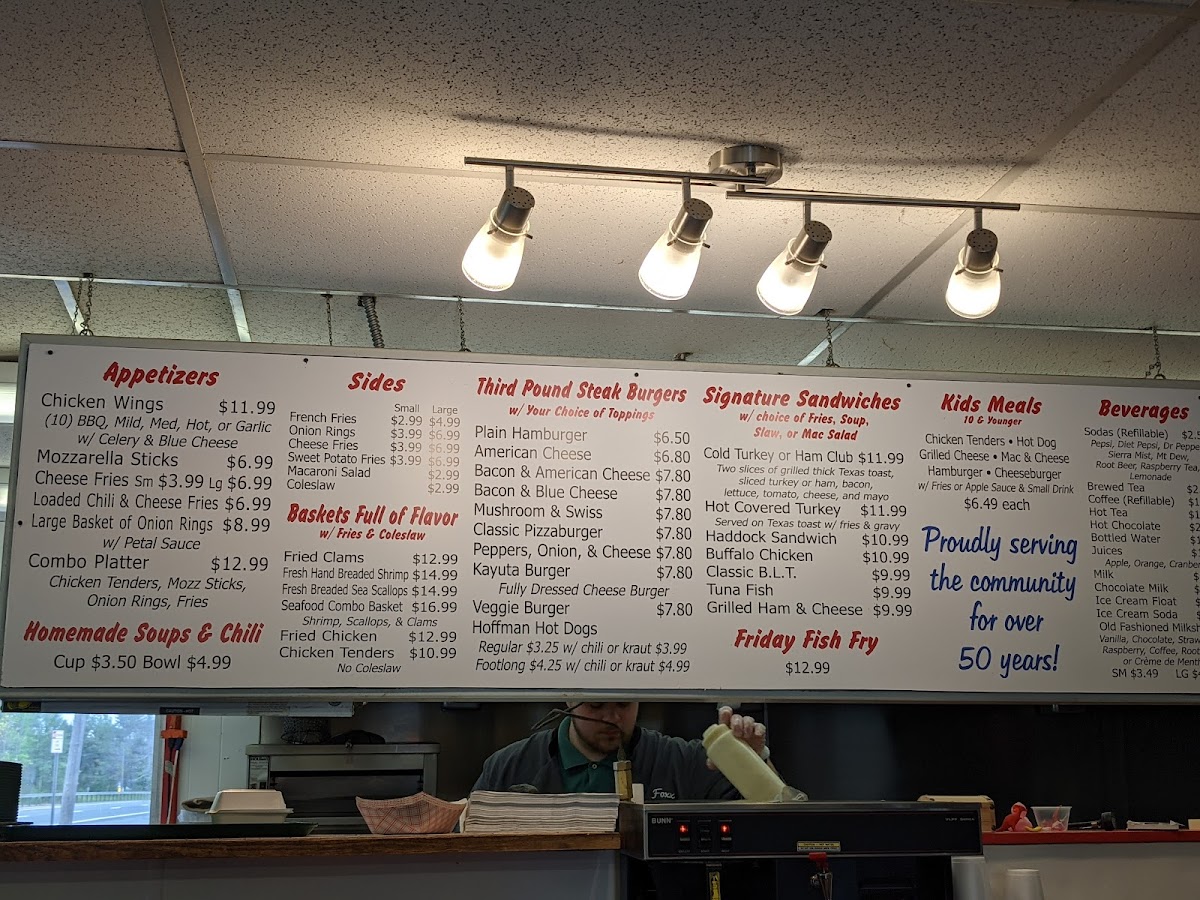 Appetizers
Chicken Wings $11.99
(10) BBQ, Mild, Med, Hot, or Garlic
w/ Celery & Blue Cheese
Mozzarella Sticks $6.99
Cheese Fries Sm $3.99 Lg $6.99
Loaded Chili & Cheese Fries $6.99
Large Basket of Onion Rings $8.99
w/ Petal Sauce
Combo Platter $12.99
Chicken Tenders, Mozz Sticks,
Onion Rings, Fries
Homemade Soups & Chili
Cup $3.50 Bowl $4.99
Sides
Small Large
French Fries $2.99 $4.99
Onion Rings $3.99 $6.99
Cheese Fries $3.99 $6.99
Sweet Potato Fries $3.99 $6.99
Macaroni Salad $2.99
Coleslaw $2.99
Baskets Full of Flavor
w/ Fries & Coleslaw
Fried Clams $12.99
Fresh Hand Breaded Shrimp $14.99
Fresh Breaded Sea Scallops $14.99
Seafood Combo Basket $16.99
Shrimp, Scallops, & Clams
Fried Chicken $12.99
Chicken Tenders $10.99
No Coleslaw
Third Pound Steak Burgers
w/ Your Choice of Toppings
Plain Hamburger $6.50
American Cheese $6.80
Bacon & American Cheese $7.80
Bacon & Blue Cheese $7.80
Mushroom & Swiss $7.80
Classic Pizzaburger $7.80
Peppers, Onion, & Cheese $7.80
Kayuta Burger $7.80
Fully Dressed Cheese Burger
Veggie Burger $7.80
Hoffman Hot Dogs
Regular $3.25 w/ chili or kraut $3.99
Footlong $4.25 w/ chili or kraut $4.99
Signature Sandwiches
w/ choice of Fries, Soup,
Slaw, or Mac Salad
Cold Turkey or Ham Club $11.99
Two slices of grilled thick Texas toast,
sliced turkey or ham, bacon,
lettuce, tomato, cheese, and mayo
Hot Covered Turkey $11.99
Served on Texas toast w/ fries & gravy
Haddock Sandwich $10.99
Buffalo Chicken $10.99
Classic B.L.T. $9.99
Tuna Fish $9.99
Grilled Ham & Cheese $9.99
Friday Fish Fry
$12.99
Kids Meals
10 & Younger
Chicken Tenders • Hot Dog
Grilled Cheese • Mac & Cheese
Hamburger • Cheeseburger
w/ Fries or Apple Sauce & Small Drink
$6.49 each
Proudly serving
the community
for over
50 years!
Beverages
Sodas (Refillable)
Pepsi, Diet Pepsi, Dr Pepper
Sierra Mist, Mt Dew,
Root Beer, Raspberry Tea,
Lemonade
Brewed Tea
Coffee (Refillable)
Hot Tea
Hot Chocolate
Bottled Water
Juices
Apple, Orange,
Milk
Chocolate Milk
Ice Cream Float
Ice Cream Soda
Old Fashioned
Vanilla, Chocolate,
Raspberry, Coffee, Root
or Crème de
SM $3.49 LG
BUNN